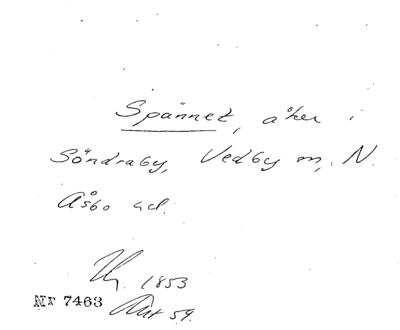 Spännet, åker i
Söndraby, Vedby sn, N.
Åsbo hd.
1853
Nr 7463 Akt 59.